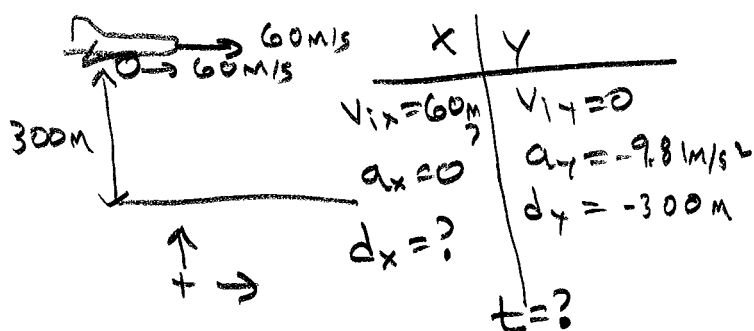 60M/S
60M/S
300M
+
X Y
Vix=60m/s Viy=0
ax=0 ay=-9.81M/s²
dx=? dy=-300M
t=?